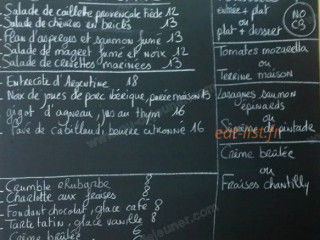 Salade de caillette provençale tiède 12
Salade de chèvres en bricks 13
Flan d'asperges et saumon fumé 13
Salade de magret fumé et noix 12
Salade de crevettes marinées 13
Entrecôte d'Argentine 18
Noix de joues de porc ibérique, purée maison 15
gigot d'agneau, jus au thym 16
Pavé de cabillaud, beurre citronné 16
Crumble rhubarbe 8
Charlotte aux fraises 8
Fondant chocolat, glace café 8
Tarte tatin, glace vanille 8
Crème brûlée 6
entrée + plat
ou
plat + dessert
NO
CB
Tomates mozarella
ou
Terrine maison
Lasagnes saumon
épinards
ou
Suprême de pintade
eat-list.fr
Crème brûlée
ou
Fraises chantilly